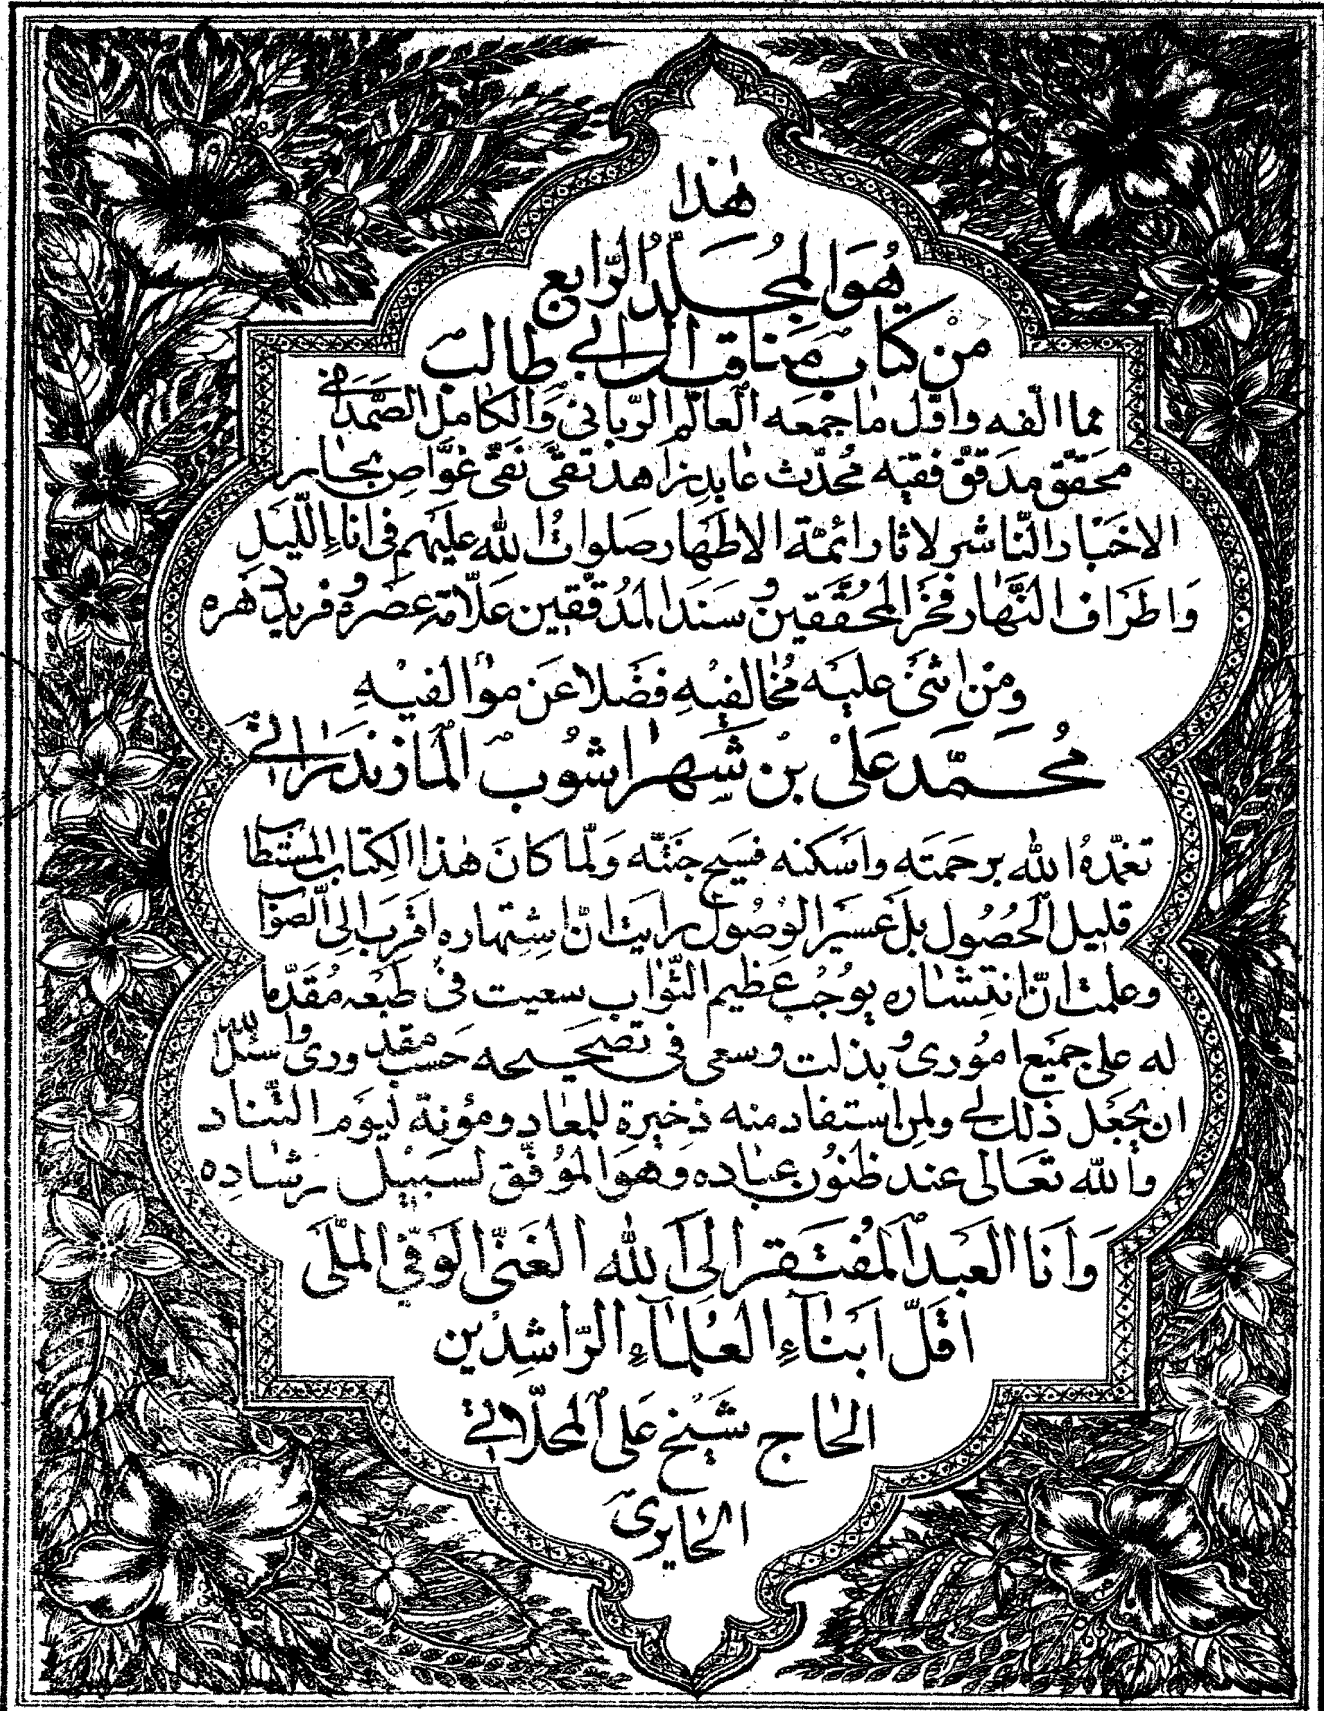 هٰذا
هُوَ المُجلّدُ الرّابع
من كتاب مناقب ال ابي طالب
مما الّفه واوّل ما جمعه العالم الرّباني وَالكامل الصّمداني
محقّق مدقّق فقيه محدّث عابد زاهد تقىّ نقىّ غوّاص بحار
الاخبار النّاشر لاثار ائمّة الاطهار صلوات الله عليهم فى اناء اللّيل
وَاطراف النّهار فخر المحقّقين وسند المدقّقين علّامة عصره وفريد دهره
ومن اثنى عليه مخالفيه فضلا عن مؤالفيه
مُحمّد على بن شهراشوب المازندرانى
تغمّده الله برحمته واسكنه فسيح جنّته ولمّا كان هٰذا الكتاب المستطاب
قليل الحُصُول بل عسير الوصُول رايت انّ اشتهاره اقرب الى الصّواب
وعلمت انّ انتشاره يوجب عظيم الثّواب سعيت فى طبعه مقدّما
له على جميع امورى وبذلت وسعى فى تصحيحه حسب مقدورى واسئل الله
ان يجعل ذلك لي ولمن استفاد منه ذخيرة للمعاد ومؤنة ليوم التّناد
والله تعالى عند ظنون عباده وهو الموفّق لسبيل رشاده
وَانا العبد المفتقر الى الله الغنىّ الوفىّ الملّى
اقلّ ابناء العلماء الرّاشدين
الحاج شيخ على المحلّاتي
الحايرى